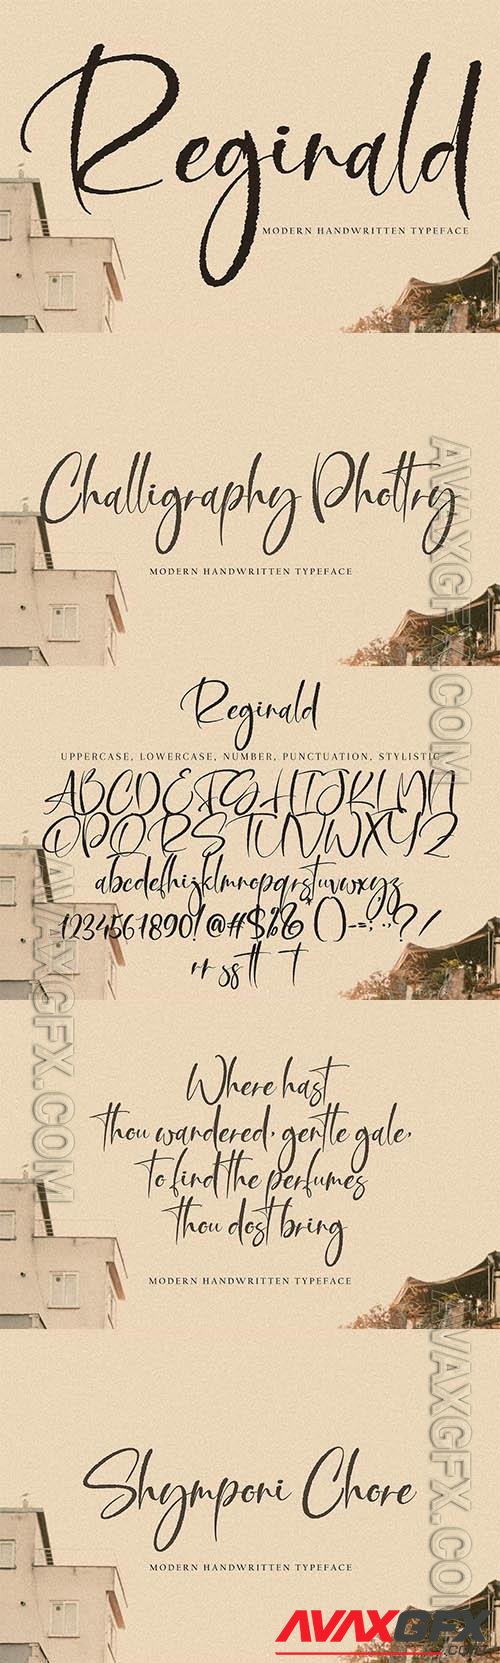 Reginald
MODERN HANDWRITTEN TYPEFACE
Challigraphy Pholtry
MODERN HANDWRITTEN TYPEFACE
AVAXGFX.COM
Reginald
UPPERCASE, LOWERCASE, NUMBER, PUNCTUATION, STYLISTIC
ABCDEFGHIJKLMN
OPQRSTUVWXYZ
abcdefhijklmnopqrstuvwxyz
1234561890! @#$%& *()-=;.,? /
rr ss tt t
AVAXGFX.COM
Where hast
thou wandered, gentle gale,
to find the perfumes
thou dost bring
MODERN HANDWRITTEN TYPEFACE
AVAXGFX.COM
Shymponi Chore
MODERN HANDWRITTEN TYPEFACE
AVAXGFX
.com